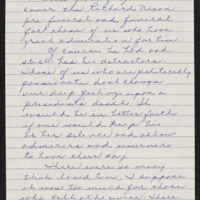 cover the Richard Nixon
pre funeral and funeral
for those of us who love
great admiration for him.
Of course he had and
still has his detractors.
Those of us who are politically
passionate don't change
our deep feelings upon a
presidents death. It
would be in better faith
if one would keep his
or her silence and allow
admirers and mourners
to have their say.
There were so many
that loved him, I suppose
it was too much for those
who felt otherwise. There